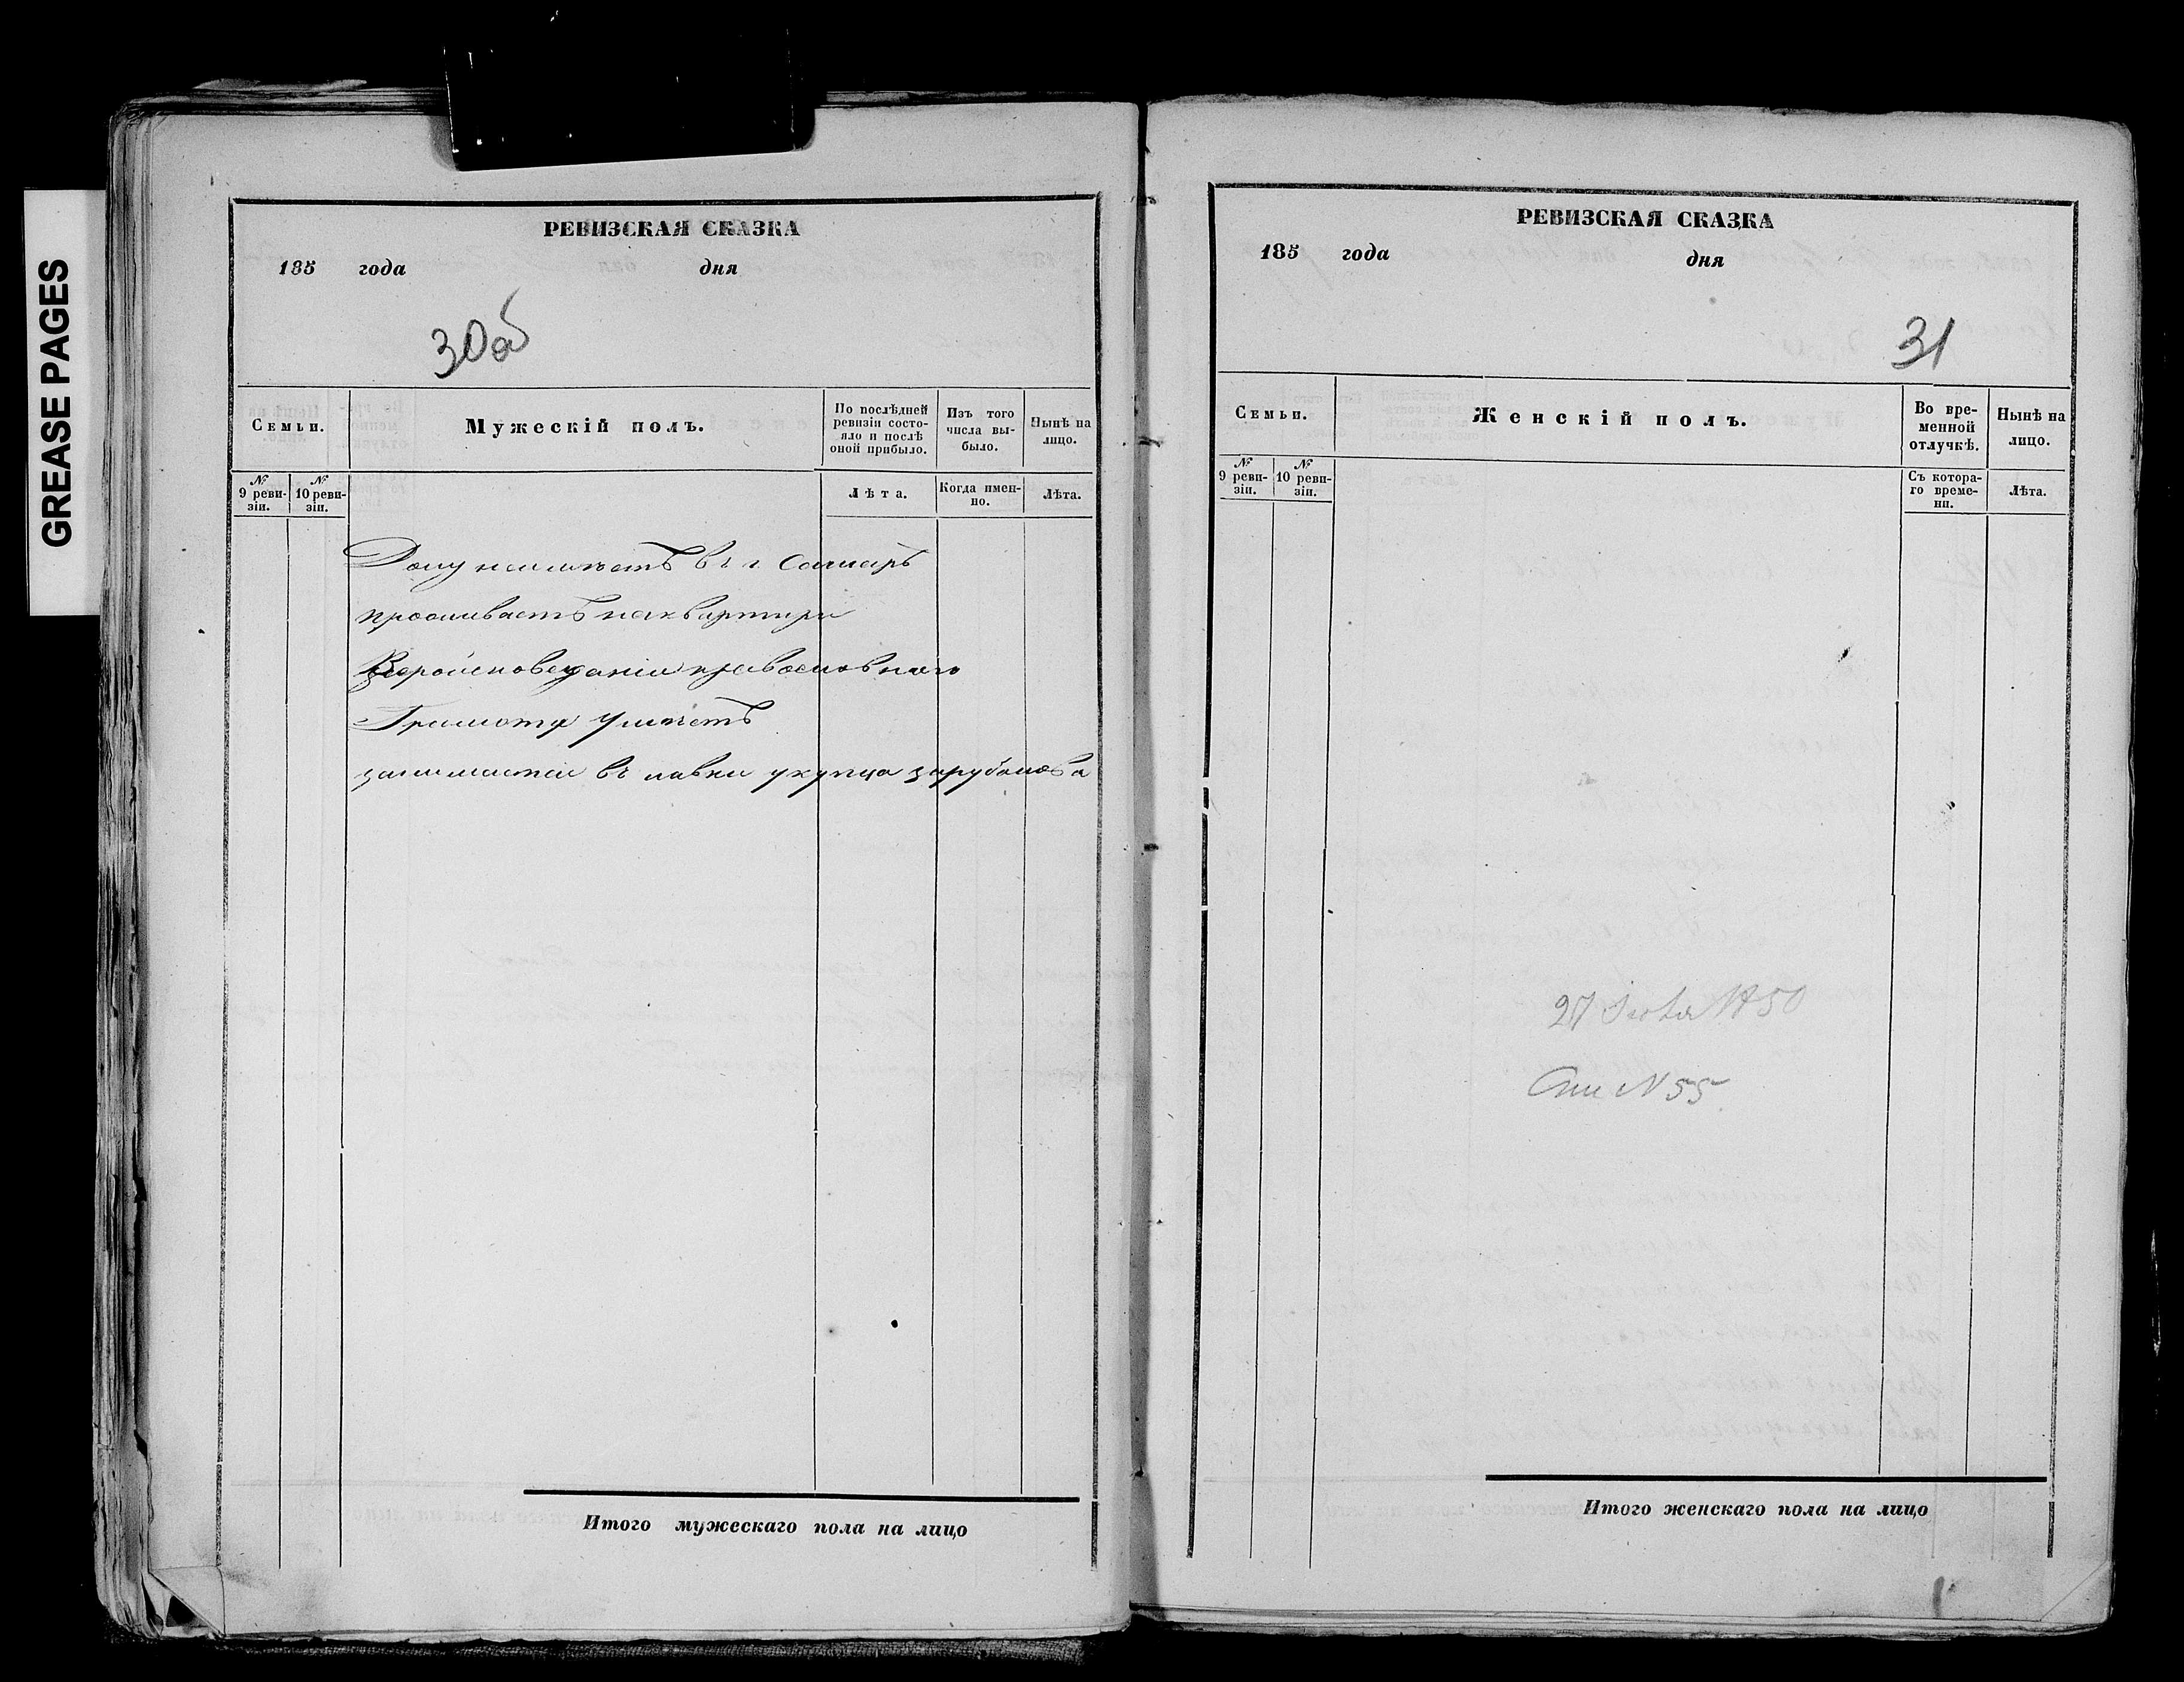 GREASE PAGES
РЕВИЗСКАЯ СКАЗКА
185 года дня
30об
Семьи.
Мужескій полъ.
По послѣдней ревизіи состояло и послѣ оной прибыло.
Изъ того числа выбыло.
Нынѣ на лицо.
№ 9 ревизіи.
№ 10 ревизіи.
Лѣта.
Когда именно.
Лѣта.
Дому неимѣетъ въ г. Самарѣ
проживаетъ на квартири
Вероисповеданія православнаго
Грамоте умѣетъ
занимается въ лавки у купца зарубалова
Итого мужескаго пола на лицо
РЕВИЗСКАЯ СКАЗКА
185 года дня
31
Семьи.
Женскій полъ.
Во временной отлучкѣ.
Нынѣ на лицо.
№ 9 ревизіи.
№ 10 ревизіи.
Съ котораго времени.
Лѣта.
27 1850
N 55
Итого женскаго пола на лицо